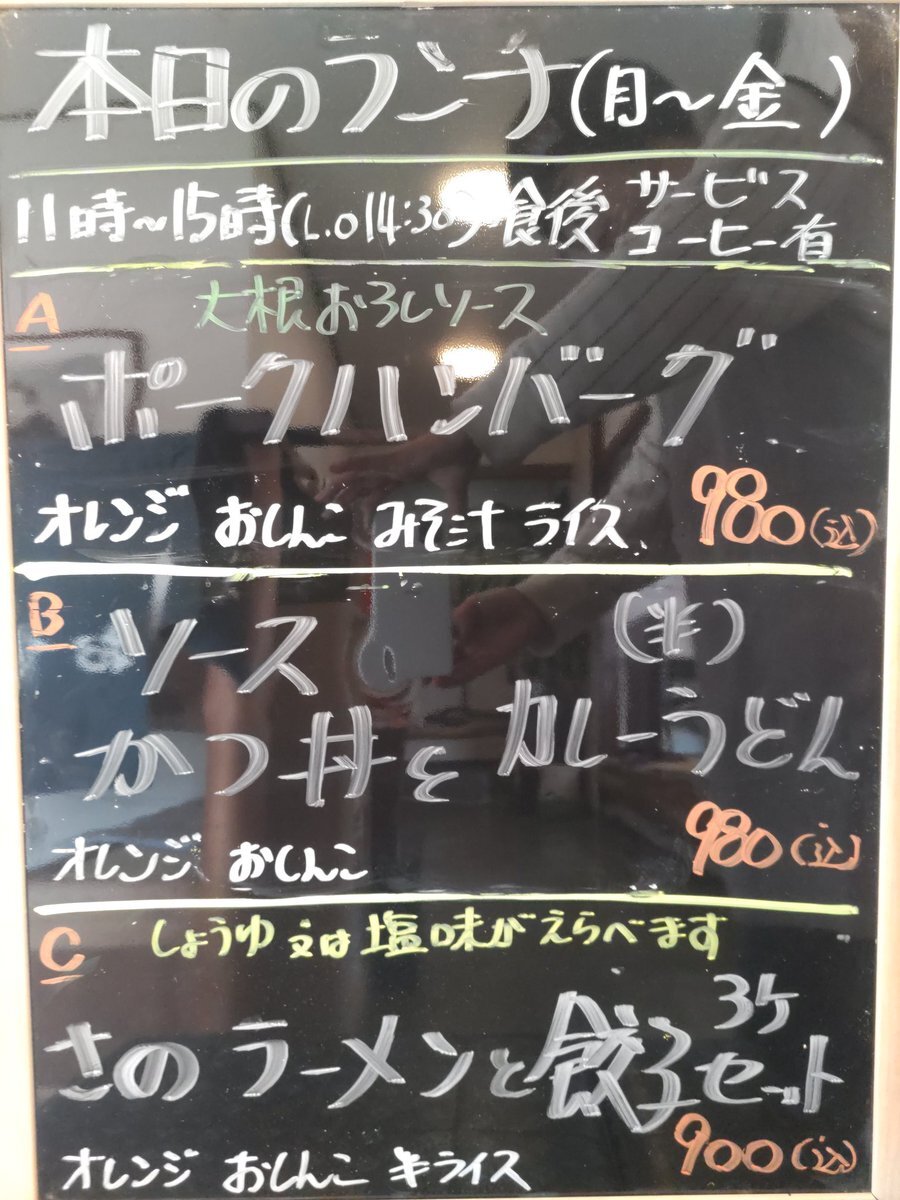 本日のランチ(月〜金)
11時〜15時(L.O 14:30) 食後 サービス
コーヒー有
A 大根おろしソース
ポークハンバーグ
オレンジ おしんこ みそ汁 ライス 980(込)
B ソース (半)
かつ丼とカレーうどん
オレンジ おしんこ 980(込)
C しょうゆ又は塩味がえらべます
3ケ
さのラーメンと餃子セット
オレンジ おしんこ 半ライス 900(込)